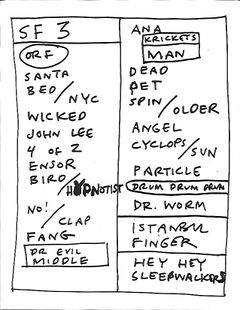 SF 3
ORF
SANTA
BED/NYC
WICKED
JOHN LEE
4 OF 2
ENSOR
BIRD/HYPNOTIST
NO!/CLAP
FANG
DR EVIL
MIDDLE
ANA
KRICKETS
MAN
DEAD
PET
SPIN/OLDER
ANGEL
CYCLOPS/SUN
PARTICLE
DRUM DRUM DRUM
DR. WORM
ISTANBUL
FINGER
HEY HEY
SLEEPWALKERS